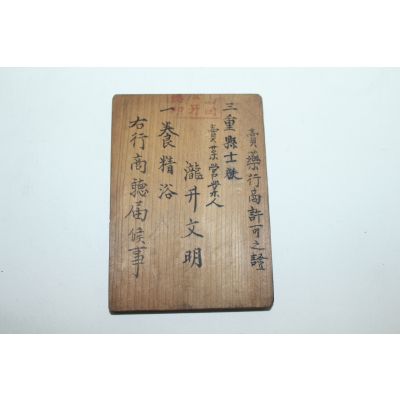 賣藥行商許可之證
三重縣士族
賣薬営業人
瀧井文明
一養精浴
右行商聴届候事